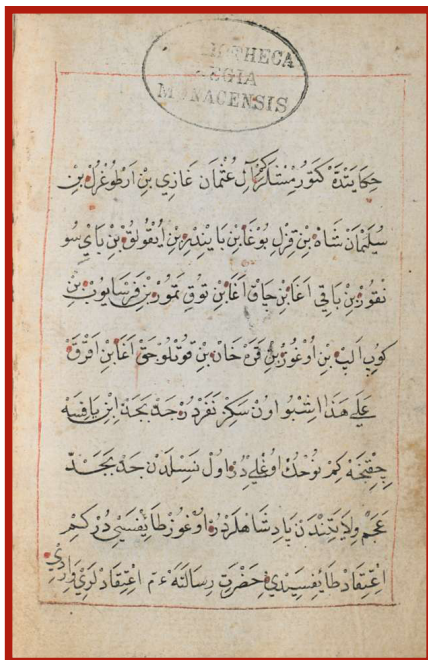 BIBLIOTHECA
REGIA
MONACENSIS
حِكَايَتِنْدَهْ كَتُورْمِشْلَرْكِمْ آلِ عُثْمَان غَازِي بِنْ اَرْطُوغْرُلْ بِنْ
سُلَيْمَانْ شَاهْ بِنْ قِزِلْ بُوغَا بِنْ بَايِنْدِرْ بِنْ اَيْقُولُوقْ بِنْ بَايْ سُو
نَقُورْ بِنْ بَاقِي اَغَا بِنْ جَاقْ اَغَا بِنْ تُوقْ تَمُورْ بِنْ
كُوبْ اَلْپْ بِنْ اُوغُوزْ بِنْ قَرَهْ خَانْ بِنْ اَغَا بِنْ
عَلَي هَذَا اشْبُو اُونْ سَكِزْ نَفَرْدُرْ جَدْ بَجَدْ اِبْنِ يَافِثَهْ
چِقِنْجَهْ كِمْ نُوحُكْ اُوغْلِي دُرْ اُولْ نَسِلْدَنْ جَدْ بَجَدْ
عَجَمْ وِلَايَتِنْدَنْ پَادِشَاهْلَرْدُرْ اُوغُوزْ طَايِفَسِي دُرْ كِمْ
اِعْتِقَادْ طَايِفَسِيدِي حَضْرَتِ رِسَالَتَهْ ءم اِعْتِقَادْلَرِي وَارِدِي